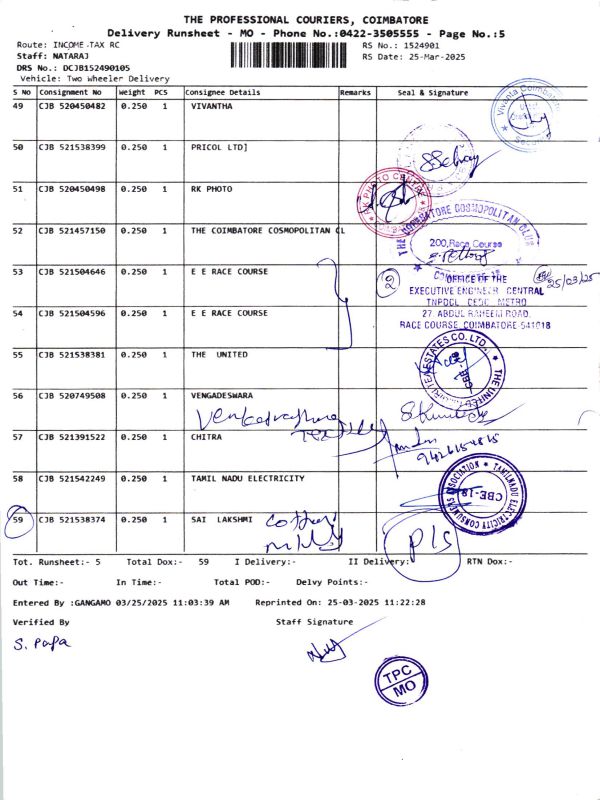 THE PROFESSIONAL COURIERS, COIMBATORE
Delivery Runsheet - MO - Phone No.:0422-3505555 - Page No.:5
Route: INCOME TAX RC RS No.: 1524901
Staff: NATARAJ RS Date: 25-Mar-2025
DRS No.: DCJB152490105
Vehicle: Two Wheeler Delivery
S No Consignment No Weight PCS Consignee Details Remarks Seal & Signature
49 CJB 520450482 0.250 1 VIVANTHA
Vivanta Coimbatore
50 CJB 521538399 0.250 1 PRICOL LTD]
51 CJB 520450498 0.250 1 RK PHOTO
RK PHOTO CENTRE
52 CJB 521457150 0.250 1 THE COIMBATORE COSMOPOLITAN CL
THE COIMBATORE COSMOPOLITAN CLUB
200, Race Course
53 CJB 521504646 0.250 1 E E RACE COURSE
2 OFFICE OF THE 25/03/25
EXECUTIVE ENGINEER CENTRAL
TNPDCL CEDC METRO
54 CJB 521504596 0.250 1 E E RACE COURSE
27, ABDUL RAHEEM ROAD,
RACE COURSE, COIMBATORE-641018
55 CJB 521538381 0.250 1 THE UNITED
CBE
56 CJB 520749508 0.250 1 VENGADESWARA
57 CJB 521391522 0.250 1 CHITRA
58 CJB 521542249 0.250 1 TAMIL NADU ELECTRICITY
TAMILNADU ELECTRICITY CONSUMERS ASSOCIATION
CBE-18
59 CJB 521538374 0.250 1 SAI LAKSHMI
P/S
Tot. Runsheet:- 5 Total Dox:- 59 I Delivery:- II Delivery:- RTN Dox:-
Out Time:- In Time:- Total POD:- Delvy Points:-
Entered By :GANGAMO 03/25/2025 11:03:39 AM Reprinted On: 25-03-2025 11:22:28
Verified By Staff Signature
S. Papa
TPC
MO